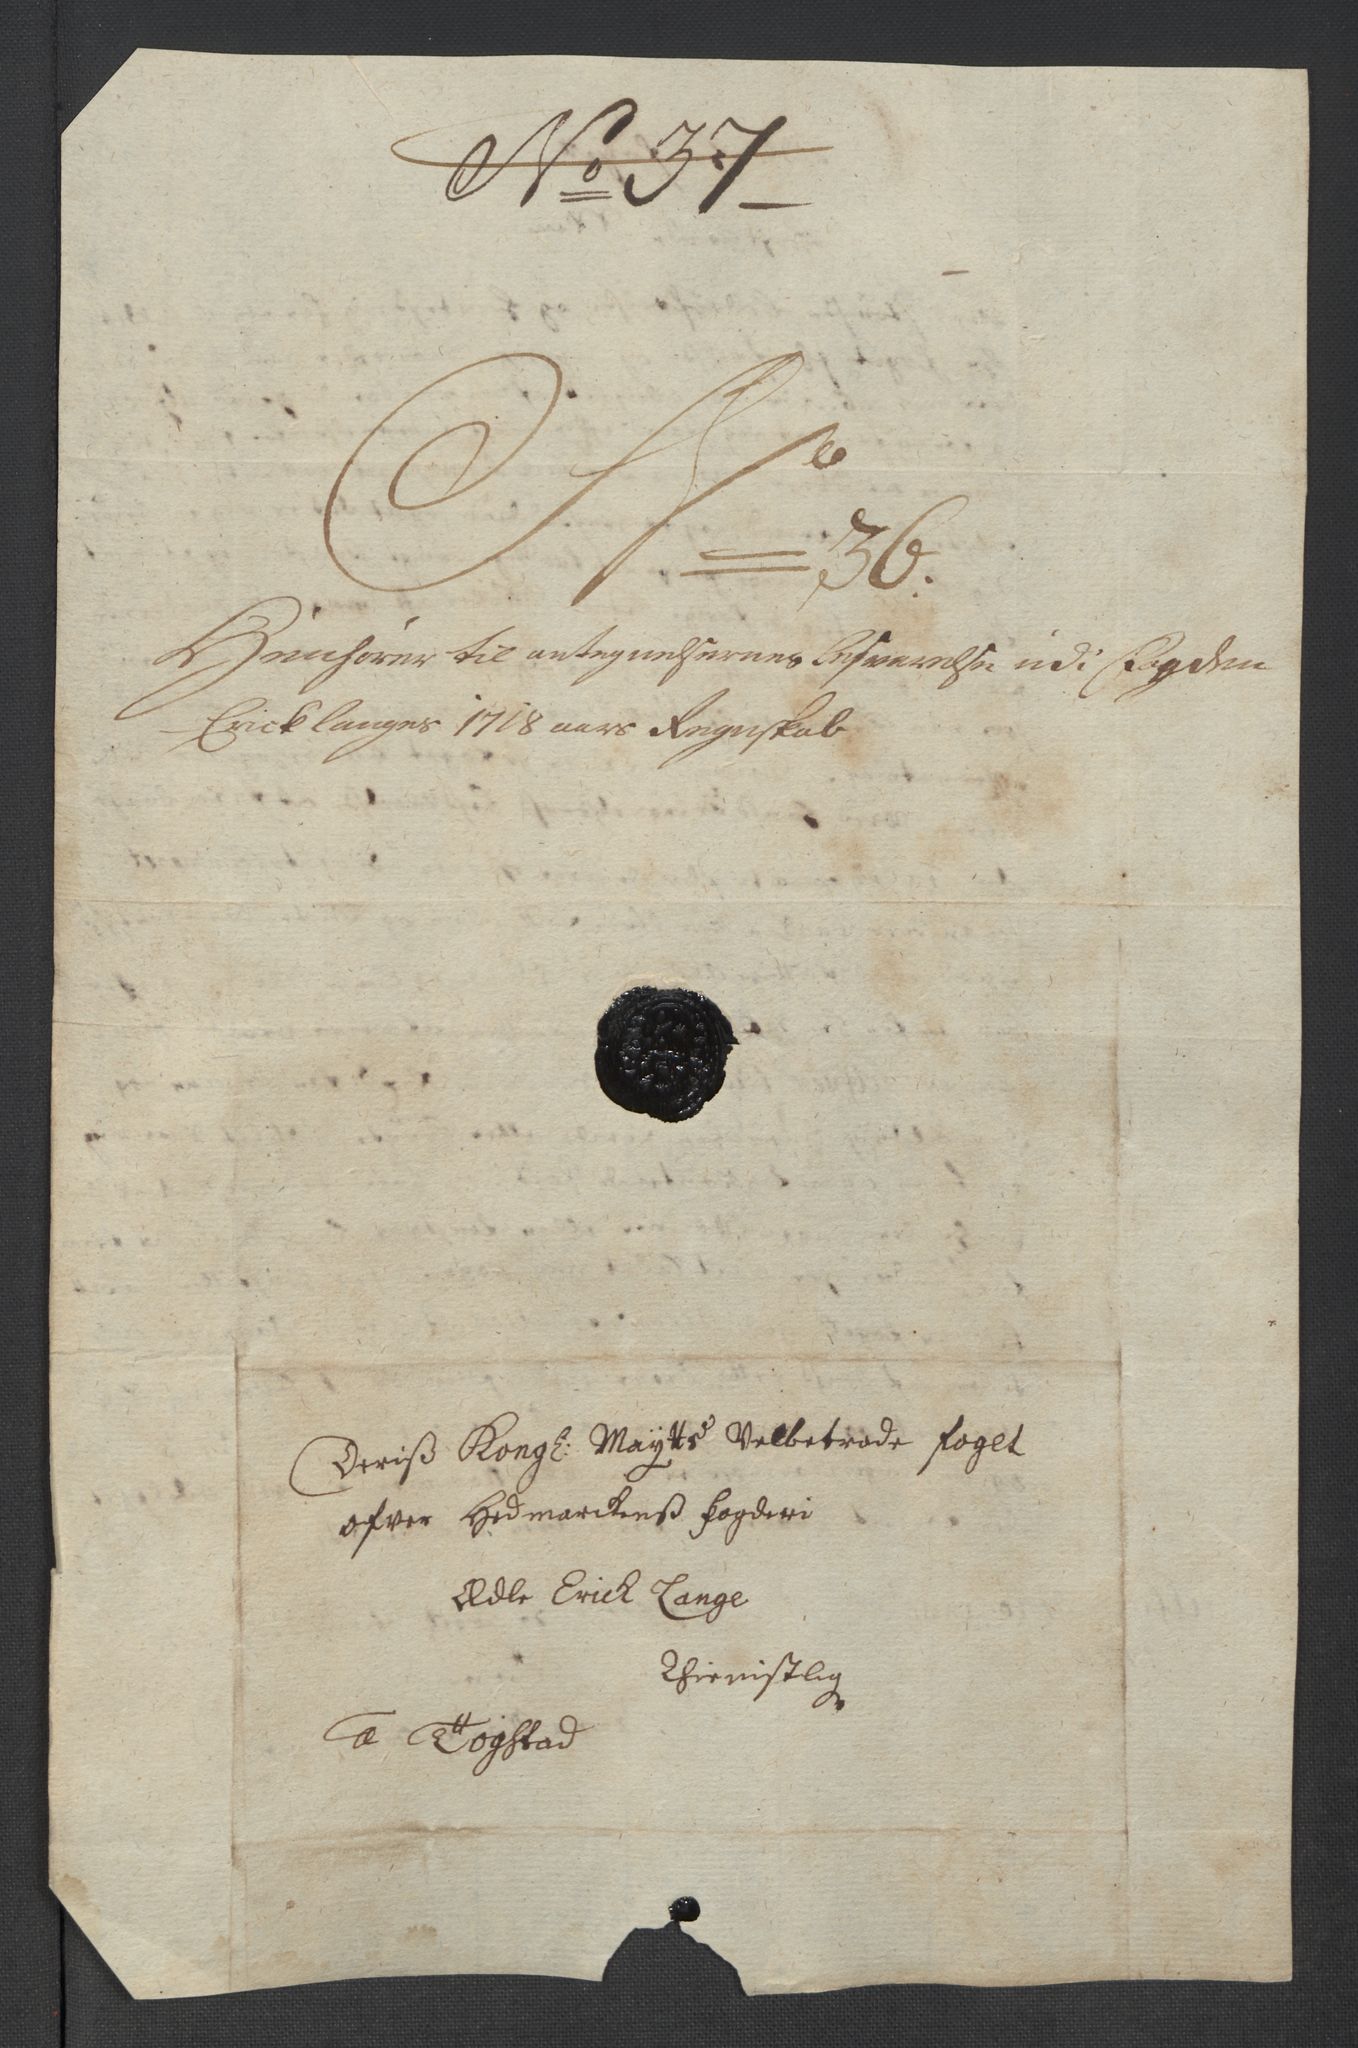 No 37
No
36.
Henhører til antegnelsernes besvarelse udi Fogden
Erick langes 1718 aars Regnskab
Deriß Kongl: Maytts Velbetrode foget
ofver Hedmarckens fogderi
Ædle Erick Lange
Thienistlig
A Togstad